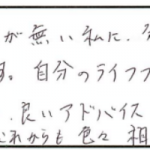 が無い私に、
。自分のライフ
良いアドバイス
これからも色々 相